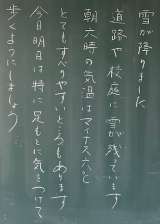 雪が降りました
道路や校庭に雪が残っています
朝六時の気温はマイナス六ど
とてもすべりやすいところもあります
今日明日は特に足もとに気をつけて
歩くようにしましょう